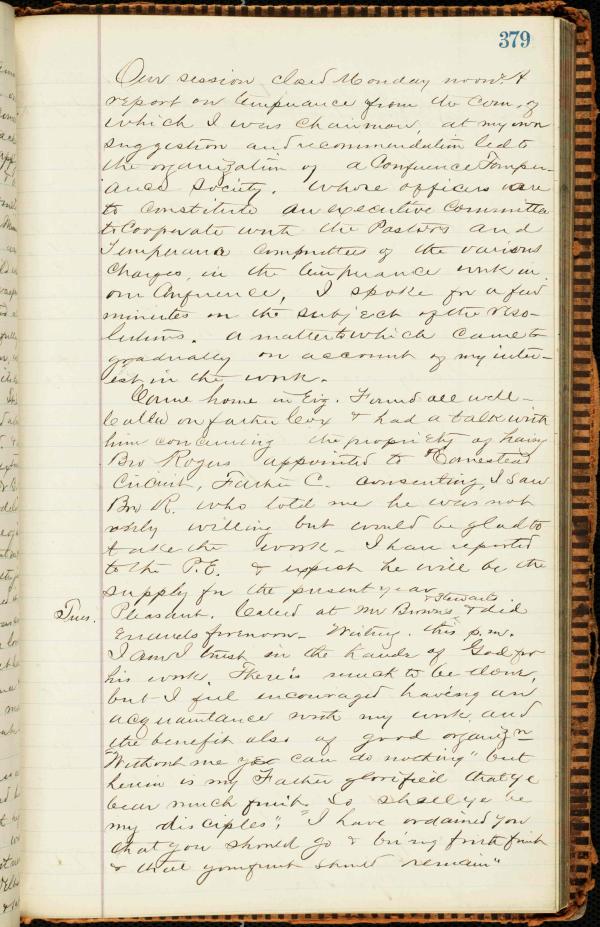 379
Our session closed Monday noon. A
report on temperance from the Com. of
which I was chairman, at my own
suggestion and recommendation led to
the organization of a Conference Temper-
ance Society. Whose officers are
to constitute an executive Committee
to Cooperate with the Pastors and
Temperance Committees of the various
Charges, in the temperance work in
our Conference. I spoke for a few
minutes on the subject of the reso-
lutions. A matter to which I came
gradually on account of my inter-
est in the work.
Came home in Evg. Found all well -
Called on father Cox & had a talk with
him concerning the propriety of having
Bro Rogers appointed to Homestead
Circuit, Father C. consenting, I saw
Bro R. who told me he was not
only willing but would be glad to
take the work - I have reported
to the P.E. & expect he will be the
supply for the present year
Tues. Pleasant. Called at Mr Brown's & Stewarts & did
Errands forenoon - Writing this p.m.
I am I trust in the hands of God for
his work. There is much to be done,
but I feel encouraged having an
acquaintance with my work, and
the benefit also of good organizn
"Without me ye can do nothing" but
herein is my Father glorified that ye
bear much fruit. So shall ye be
my disciples"; "I have ordained you
that you should go & bring forth fruit
& that your fruit should remain"